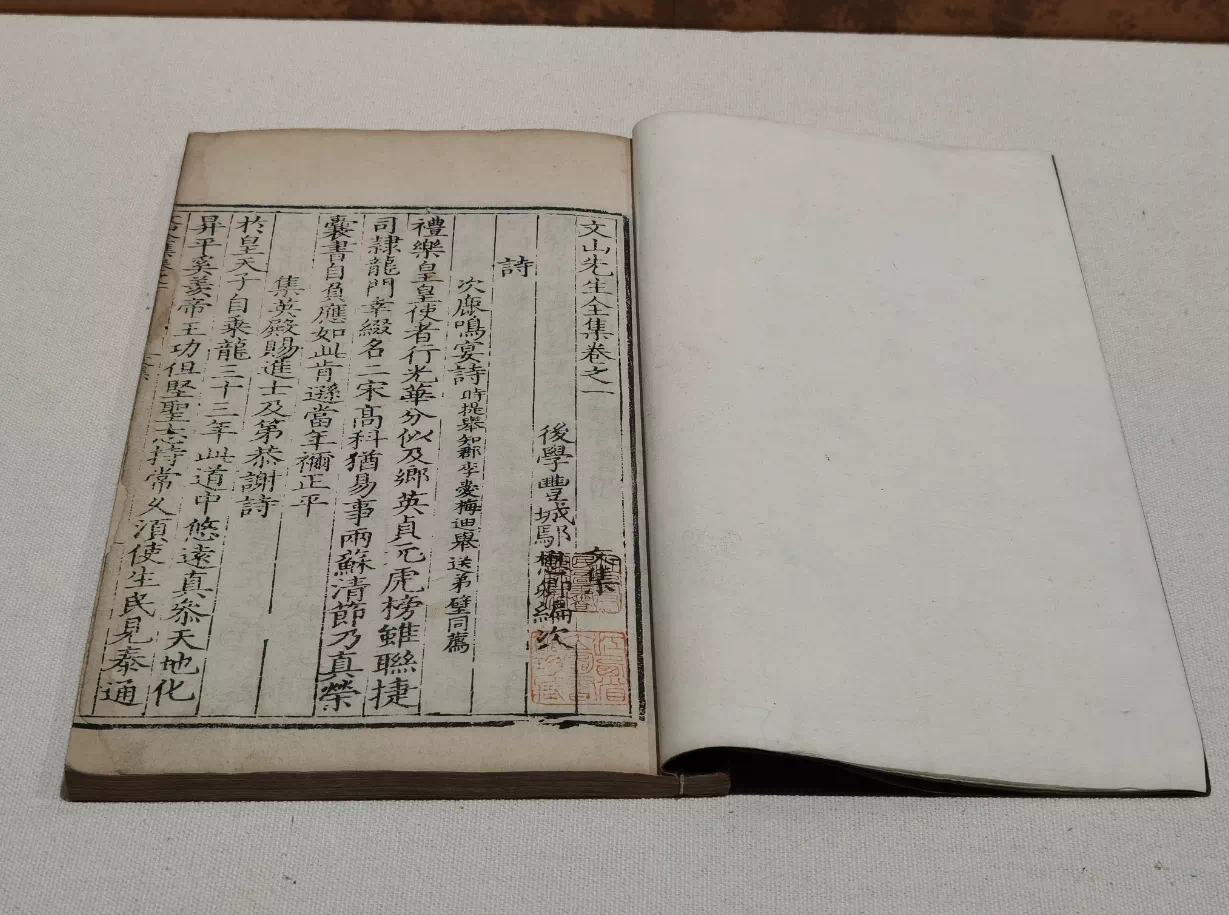 文山先生全集卷之一
文集
後學豐城鄢懋卿編次
詩
次鹿鳴宴詩時提舉知郡李愛梅迪舉送弟璧同薦
禮樂皇皇使者行光華分似及鄉英貞元虎榜雖聯捷
司隸龍門幸綴名二宋高科猶易事兩蘇清節乃真榮
囊書自負應如此肯遜當年禰正平
集英殿賜進士及第恭謝詩
於皇天子自乘龍三十三年此道中悠遠真參天地化
昇平奚羨帝王功但堅聖志持常久須使生民見泰通